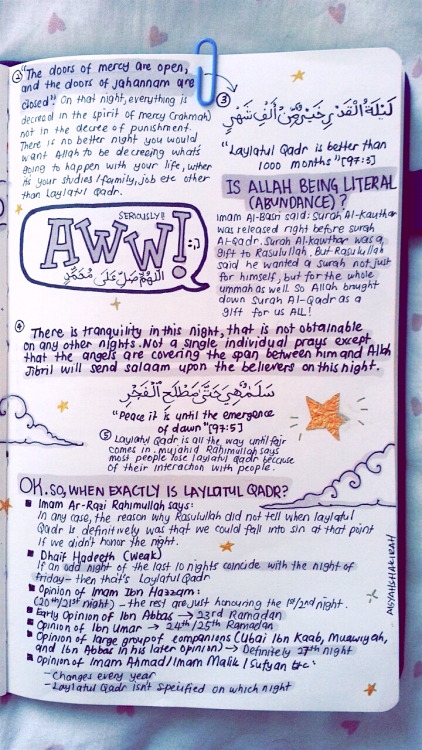 ② "The doors of mercy are open,
and the doors of jahannam are
closed" On that night, everything is
decreed in the spirit of mercy (rahmah)
not in the decree of punishment.
There is no better night you would
want Allah to be decreeing what's
going to happen with your life, wither
its your studies/family, job etc other
than Laylatul Qadr.
SERIOUSLY!!
AWW!
اللهم صل على محمد
③
لَيْلَةُ الْقَدْرِ خَيْرٌ مِّنْ أَلْفِ شَهْرٍ
"Laylatul Qadr is better than
1000 months" [97:3]
IS ALLAH BEING LITERAL
(ABUNDANCE)?
Imam Al-Basri said: Surah Al-kauthar
was released right before surah
Al-Qadr. Surah Al-kawthar was a
gift to Rasulullah. But Rasulullah
said he wanted a surah not just
for himself, but for the whole
ummah as well. So Allah brought
down Surah Al-Qadr as a
gift for us ALL!
④ There is tranquility in this night, that is not obtainable
on any other nights. Not a single individual prays except
that the angels are covering the span between him and Allah
Jibril will send salaam upon the believers on this night.
سَلَٰمٌ هِيَ حَتَّىٰ مَطْلَعِ الْفَجْرِ
"Peace it is until the emergence
of dawn" [97:5]
⑤ Laylatul Qadr is all the way until fajr
comes in. mujahid Rahimullah says
most people lose laylatul qadr because
of their interaction with people.
OK. SO, WHEN EXACTLY IS LAYLATUL QADR?
Imam Ar-Razi Rahimullah says:
In any case, the reason why Rasulullah did not tell when laylatul
Qadr is definitively was that we could fall into sin at that point
if we didn't honor the night.
Dhaif Hadeeth (weak)
If an odd night of the last 10 nights coincide with the night of
friday - then that's Laylatul Qadr
Opinion of Imam Ibn Hazzam:
(20th/21st night) - the rest are just honouring the 1st/2nd night.
Early Opinion of Ibn Abbas → 23rd Ramadan
Opinion of Ibn Umar → 24th/25th Ramadan
Opinion of large group of companions (Ubai Ibn Kaab, Muawiyah,
and Ibn Abbas in his later opinion) → Definitely 27th night
Opinion of Imam Ahmad/Imam Malik/Sufyan etc:
- Changes every year
- Laylatul Qadr isn't specified on which night
AISYAHSHAKIRAH